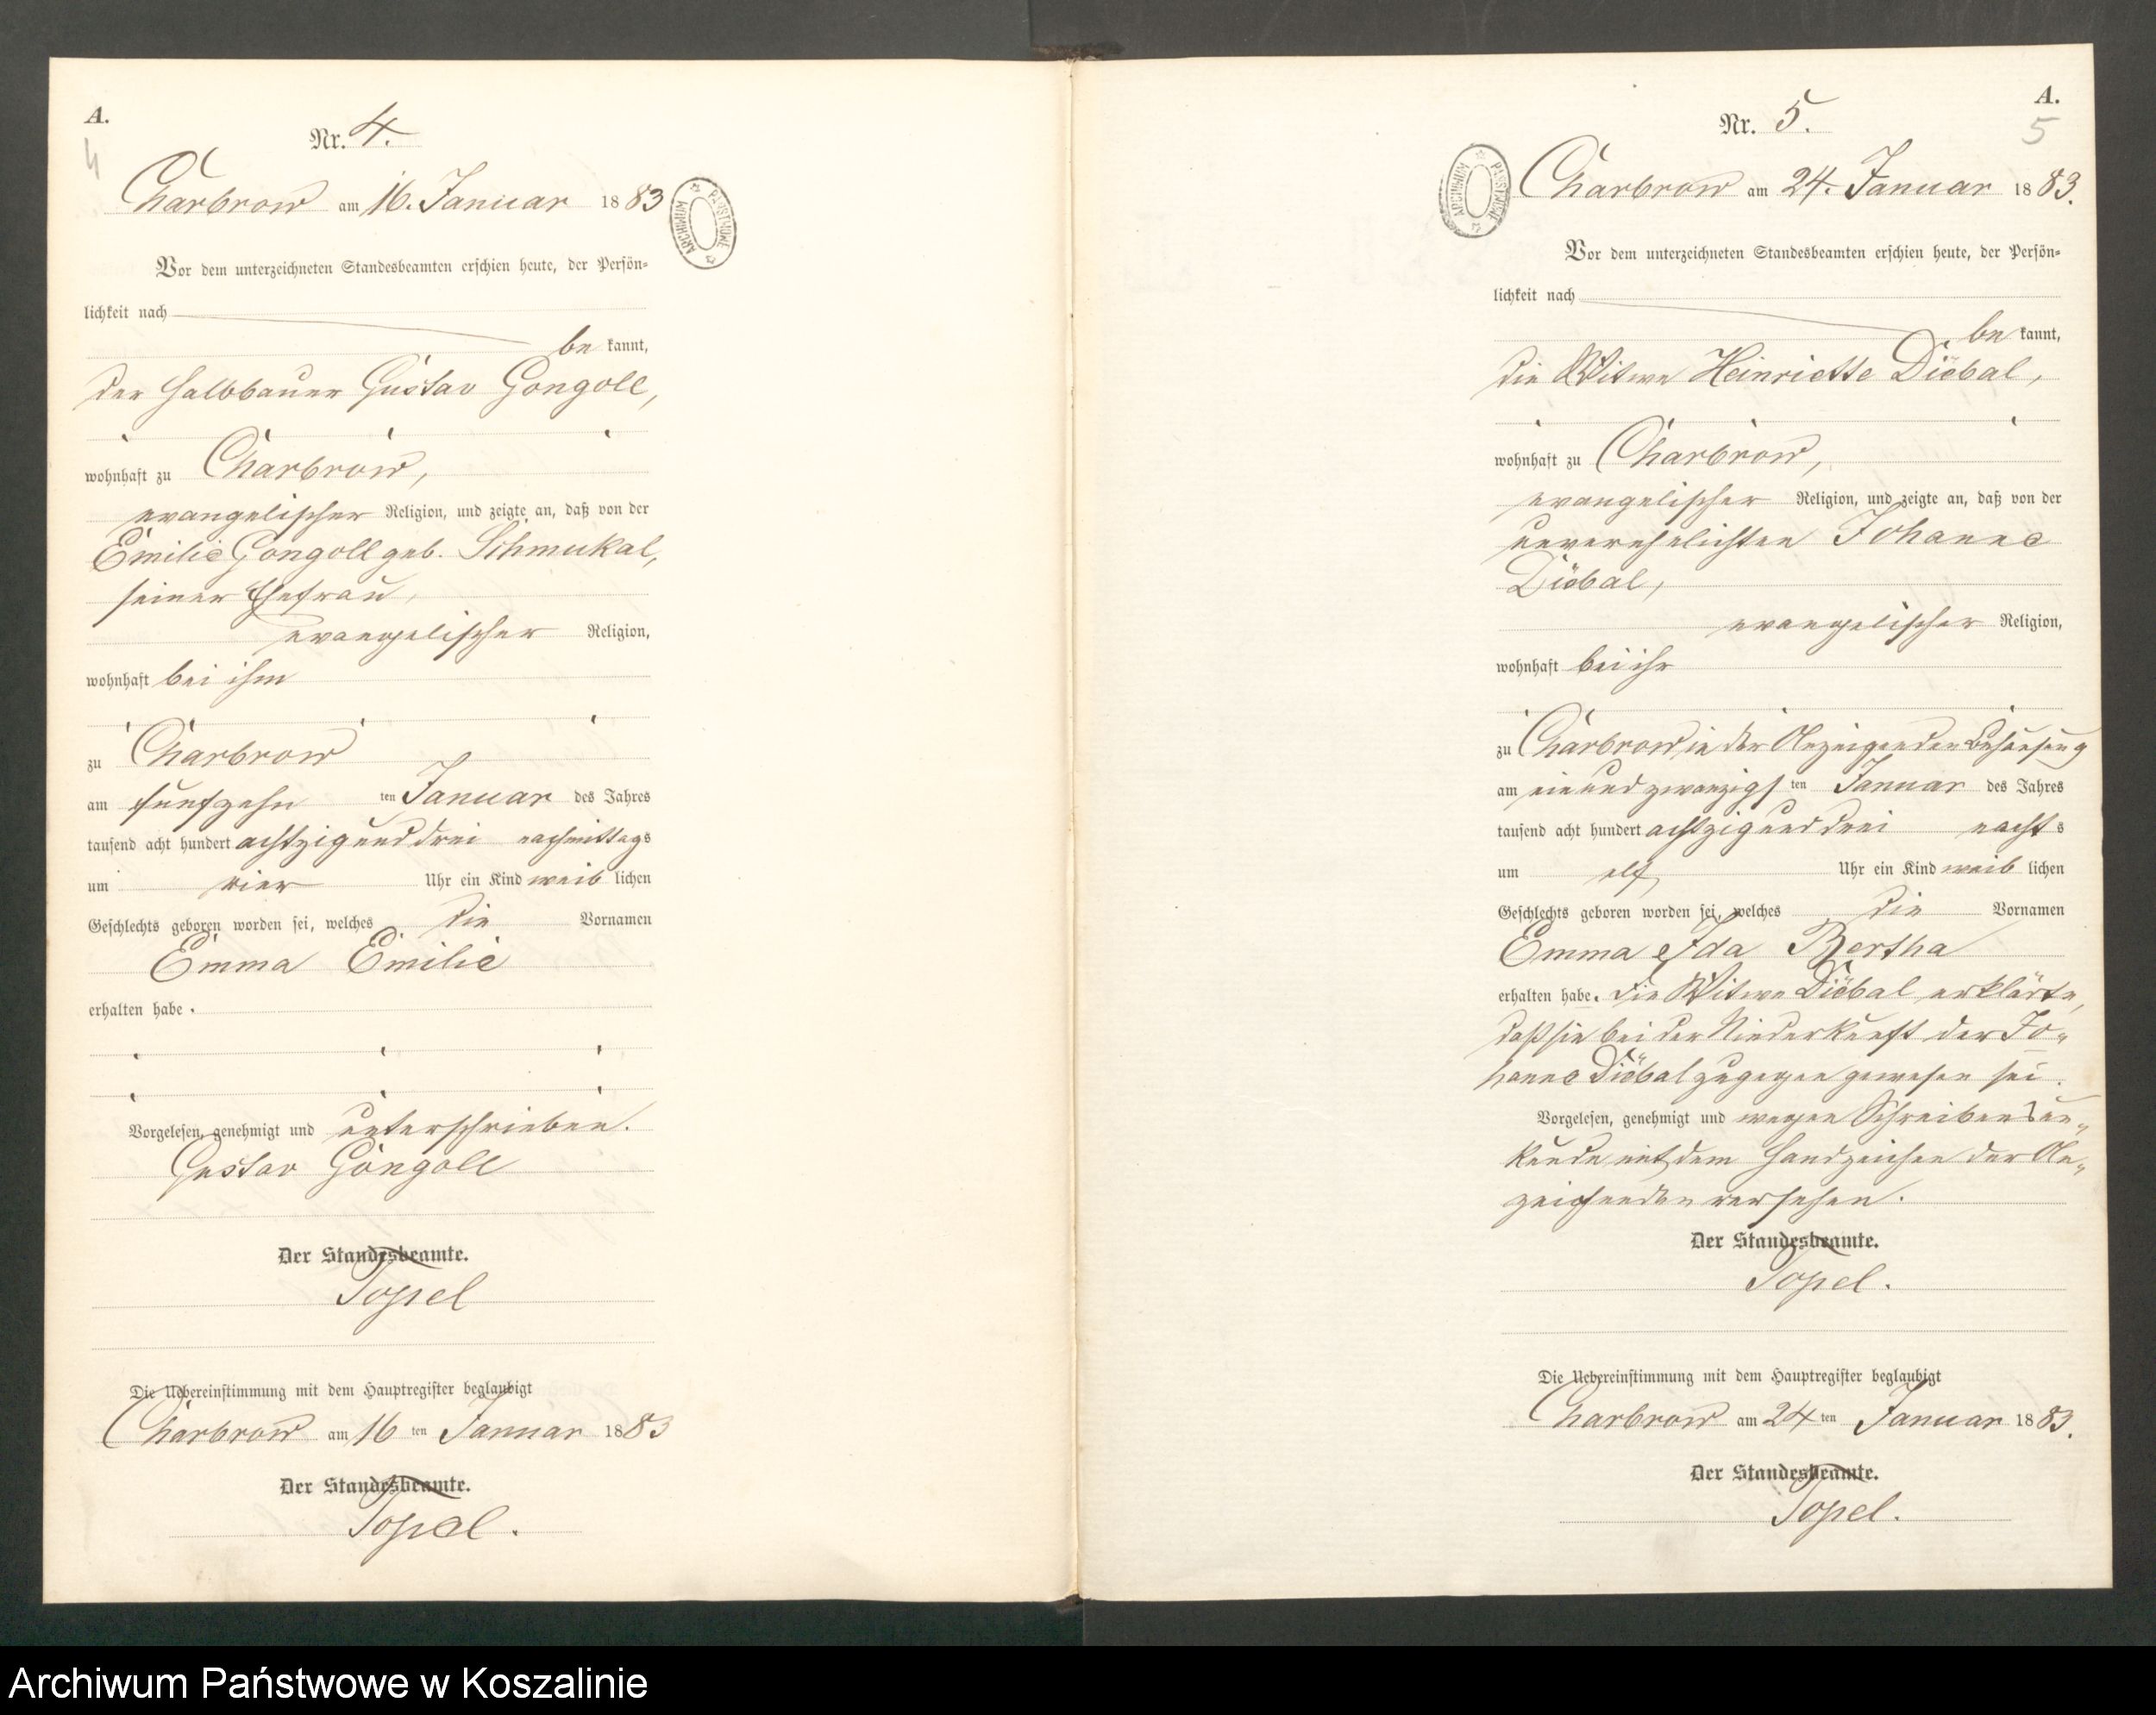 A.
4
Nr. 4.
Charbrow am 16. Januar 1883
ARCHIWUM PAŃSTWOWE
Vor dem unterzeichneten Standesbeamten erschien heute, der Persön-
lichkeit nach
be kannt,
der Halbbauer Gustav Gongoll,
wohnhaft zu Charbrow,
evangelischer Religion, und zeigte an, daß von der
Emilie Gongoll geb. Schmukal,
seiner Ehefrau,
evangelischer Religion,
wohnhaft bei ihm
zu Charbrow
am fünfzehn ten Januar des Jahres
tausend acht hundert achtzig und drei nachmittags
um vier Uhr ein Kind weib lichen
Geschlechts geboren worden sei, welches die Vornamen
Emma Emilie
erhalten habe.
Vorgelesen, genehmigt und unterschrieben.
Gustav Gongoll
Der Standesbeamte.
Topel
Die Uebereinstimmung mit dem Hauptregister beglaubigt
Charbrow am 16 ten Januar 1883
Der Standesbeamte.
Topel.
A.
5
Nr. 5.
ARCHIWUM PAŃSTWOWE
Charbrow am 24. Januar 1883.
Vor dem unterzeichneten Standesbeamten erschien heute, der Persön-
lichkeit nach
be kannt,
die Witwe Heinriette Diöbal,
wohnhaft zu Charbrow,
evangelischer Religion, und zeigte an, daß von der
unverehelichten Johanne
Diöbal,
evangelischer Religion,
wohnhaft bei ihr
zu Charbrow in der Anzeigenden Behausung
am einundzwanzigs ten Januar des Jahres
tausend acht hundert achtzig und drei nacht s
um elf Uhr ein Kind weib lichen
Geschlechts geboren worden sei, welches die Vornamen
Emma Ida Bertha
erhalten habe. Die Witwe Diöbal erklärte,
daß sie bei der Niederkunft der Jo-
hanne Diöbal zugegen gewesen sei.
Vorgelesen, genehmigt und wegen Schreibensun-
kunde mit dem Handzeichen der An-
zeigenden versehen.
Der Standesbeamte.
Topel.
Die Uebereinstimmung mit dem Hauptregister beglaubigt
Charbrow am 24 ten Januar 1883.
Der Standesbeamte.
Topel.
Archiwum Państwowe w Koszalinie